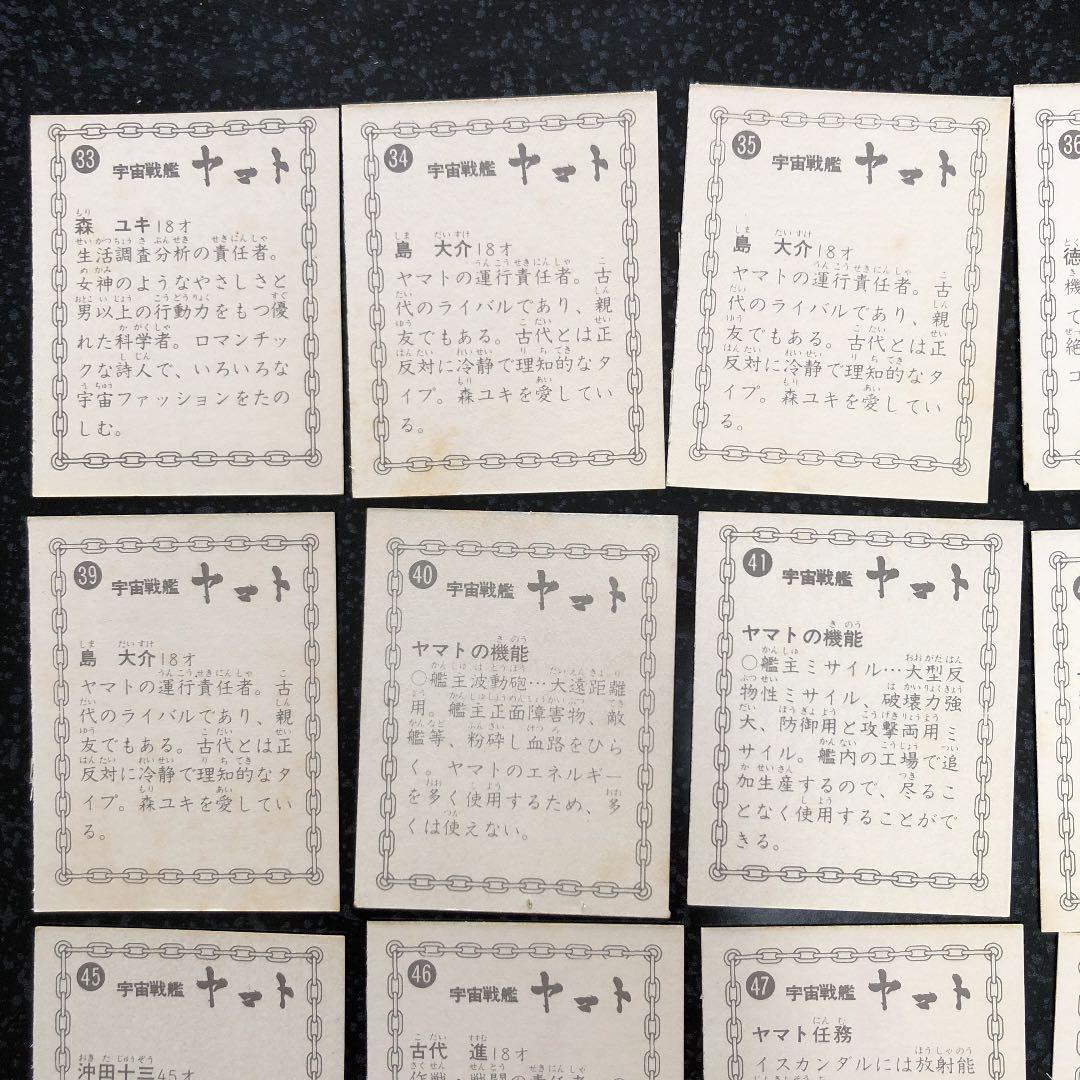 33 宇宙戦艦 ヤマト
森 ユキ18才
生活調査分析の責任者。
女神のようなやさしさと
男以上の行動力をもつ優
れた科学者。ロマンチッ
クな詩人で、いろいろな
宇宙ファッションをたの
しむ。
34 宇宙戦艦 ヤマト
島 大介18才
ヤマトの運行責任者。古
代のライバルであり、親
友でもある。古代とは正
反対に冷静で理知的なタ
イプ。森ユキを愛してい
る。
35 宇宙戦艦 ヤマト
島 大介18才
ヤマトの運行責任者。古
代のライバルであり、親
友でもある。古代とは正
反対に冷静で理知的なタ
イプ。森ユキを愛してい
る。
36
徳
機
て
絶
コ
39 宇宙戦艦 ヤマト
島 大介18才
ヤマトの運行責任者。古
代のライバルであり、親
友でもある。古代とは正
反対に冷静で理知的なタ
イプ。森ユキを愛してい
る。
40 宇宙戦艦 ヤマト
ヤマトの機能
○艦主波動砲…大遠距離
用。艦主正面障害物、敵
艦等、粉砕し血路をひら
く。ヤマトのエネルギー
を多く使用するため、多
くは使えない。
41 宇宙戦艦 ヤマト
ヤマトの機能
○艦主ミサイル…大型反
物性ミサイル、破壊力強
大、防御用と攻撃両用ミ
サイル。艦内の工場で追
加生産するので、尽るこ
となく使用することがで
きる。
45 宇宙戦艦 ヤマト
沖田十三45才
46 宇宙戦艦 ヤマト
古代 進18才
作戦・戦闘の責任者
47 宇宙戦艦 ヤマト
ヤマト任務
イスカンダルには放射能